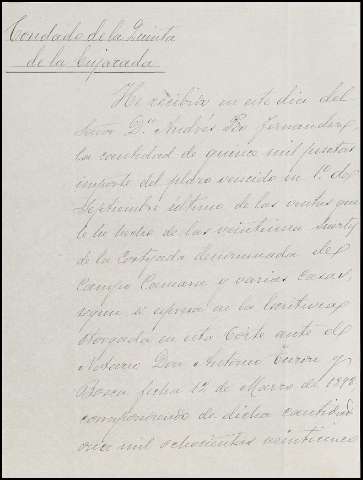 Condado de la Quinta
de la Enjarada
He recibido en este dia del
Señor Dn. Andrés Pio Fernandez
la cantidad de quince mil pesetas
importe del plazo vencido en 1º de
Septiembre ultimo de las ventas que
le he hecho de las veintiuna
de la denominada del
Campo y varias casas,
segun se espresa en la Escritura
otorgada en esta Corte ante el
Notario Don Antonio Turon y
Bosca fecha 12 de Marzo de
de dicha cantidad
once mil ochocientas veinticinco